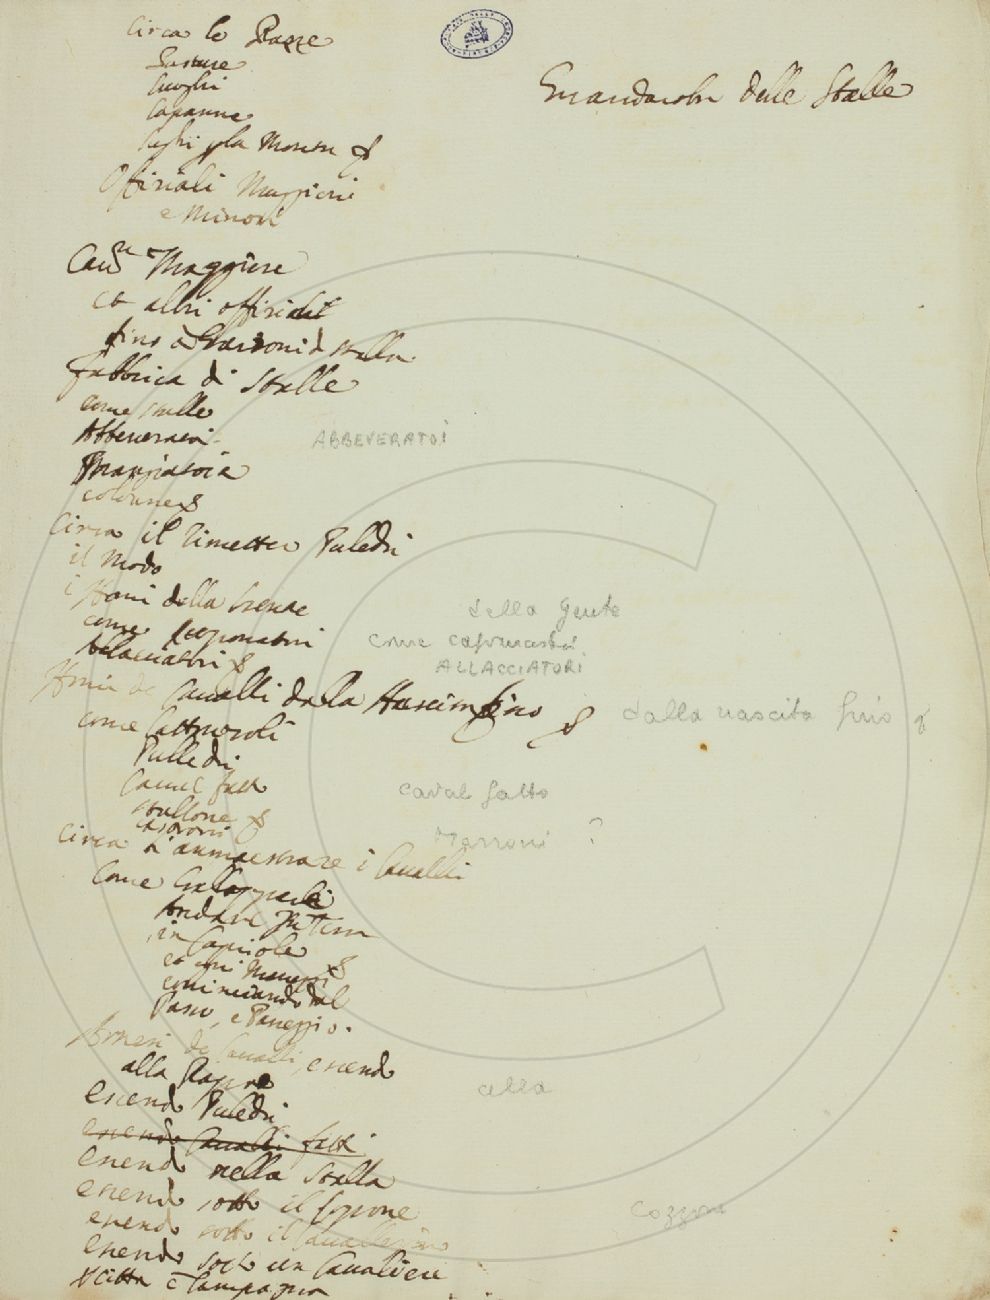 Circa le Razze
Pasture
Luoghi
Capanne
la Monta &
Offitiali Maggiori
e Minori
Guardarobe delle Stalle
Maggiore
et altri offitiali
fino a Garzoni di stalla
fabbrica di Stalle
come stalle
Abbeveratoi
ABBEVERATOI
Mangiatoia
colonne &
Circa il rimetter Puledri
il Modo
della
della gente
come
come
ALLACCIATORI
Allacciatori &
Cavalli dalla Nascita fino &
dalla nascita fino &
come
Pulledri
Caval fatto
caval fatto
stallone &
Marroni ?
Circa l'ammaestrare i Cavalli
Come Galopparli
Andare
in Capriole
et altri Maneggi &
cominciando dal
Passo, e Passeggio.
Arnesi de Cavalli, essendo
alla Razza
alla
essendo Puledri
essendo Cavalli fatti
essendo nella Stalla
essendo sotto il Cozzone
Cozzone
essendo sotto il Cavallerizzo
essendo sotto un Cavaliere
Città e Campagna